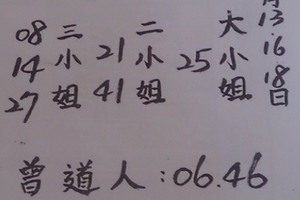 13.16.18日
大小姐 25
二小姐 21 41
三小姐 08 14 27
曾道人:06.46